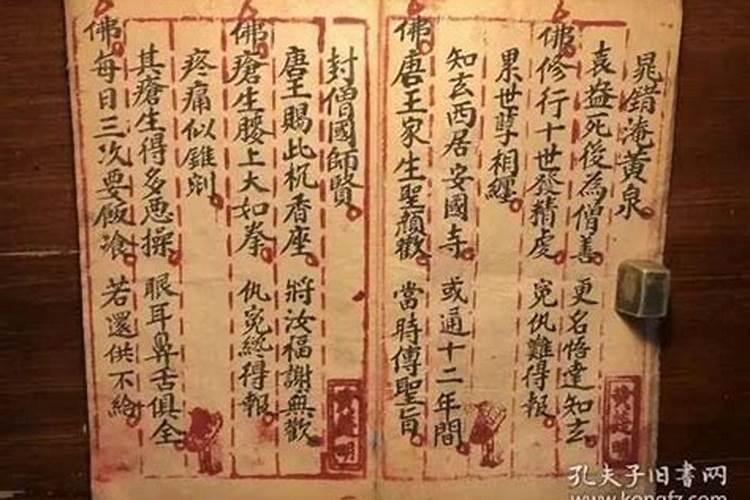 晁錯淹黃泉
袁盎死後為僧善 更名悟達知玄
佛修行十世發精虔 冤仇難得報
累世孽相纏
知玄西居安國寺 或通十二年間
佛唐王家生聖顏歡 當時傳聖旨
封僧國師賢
唐王賜此杌香座 將汝福謝無歡
佛瘡生腰上大如拳 仇冤終得報
疼痛似錐剜
其瘡生得多惡操 眼耳鼻舌俱全
佛每日三次要飯飡 若還供不給
孔夫子旧書网
www.kongfz.com